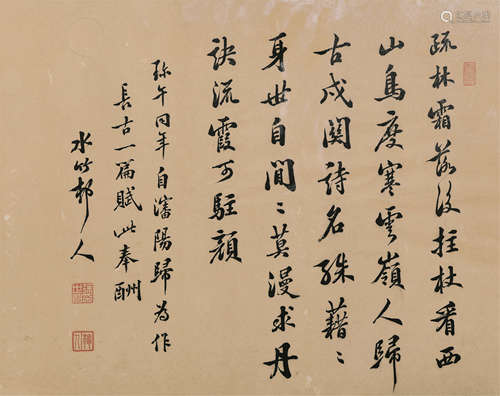 疏林霜落後拄杖看西
山鳥度寒雲嶺人歸
古戍関詩名殊藉〻
身世自閒〻莫漫求丹
訣流霞可駐顔
珎午同年自瀋陽歸為作
長古一篇賦此奉酬
水竹邨人